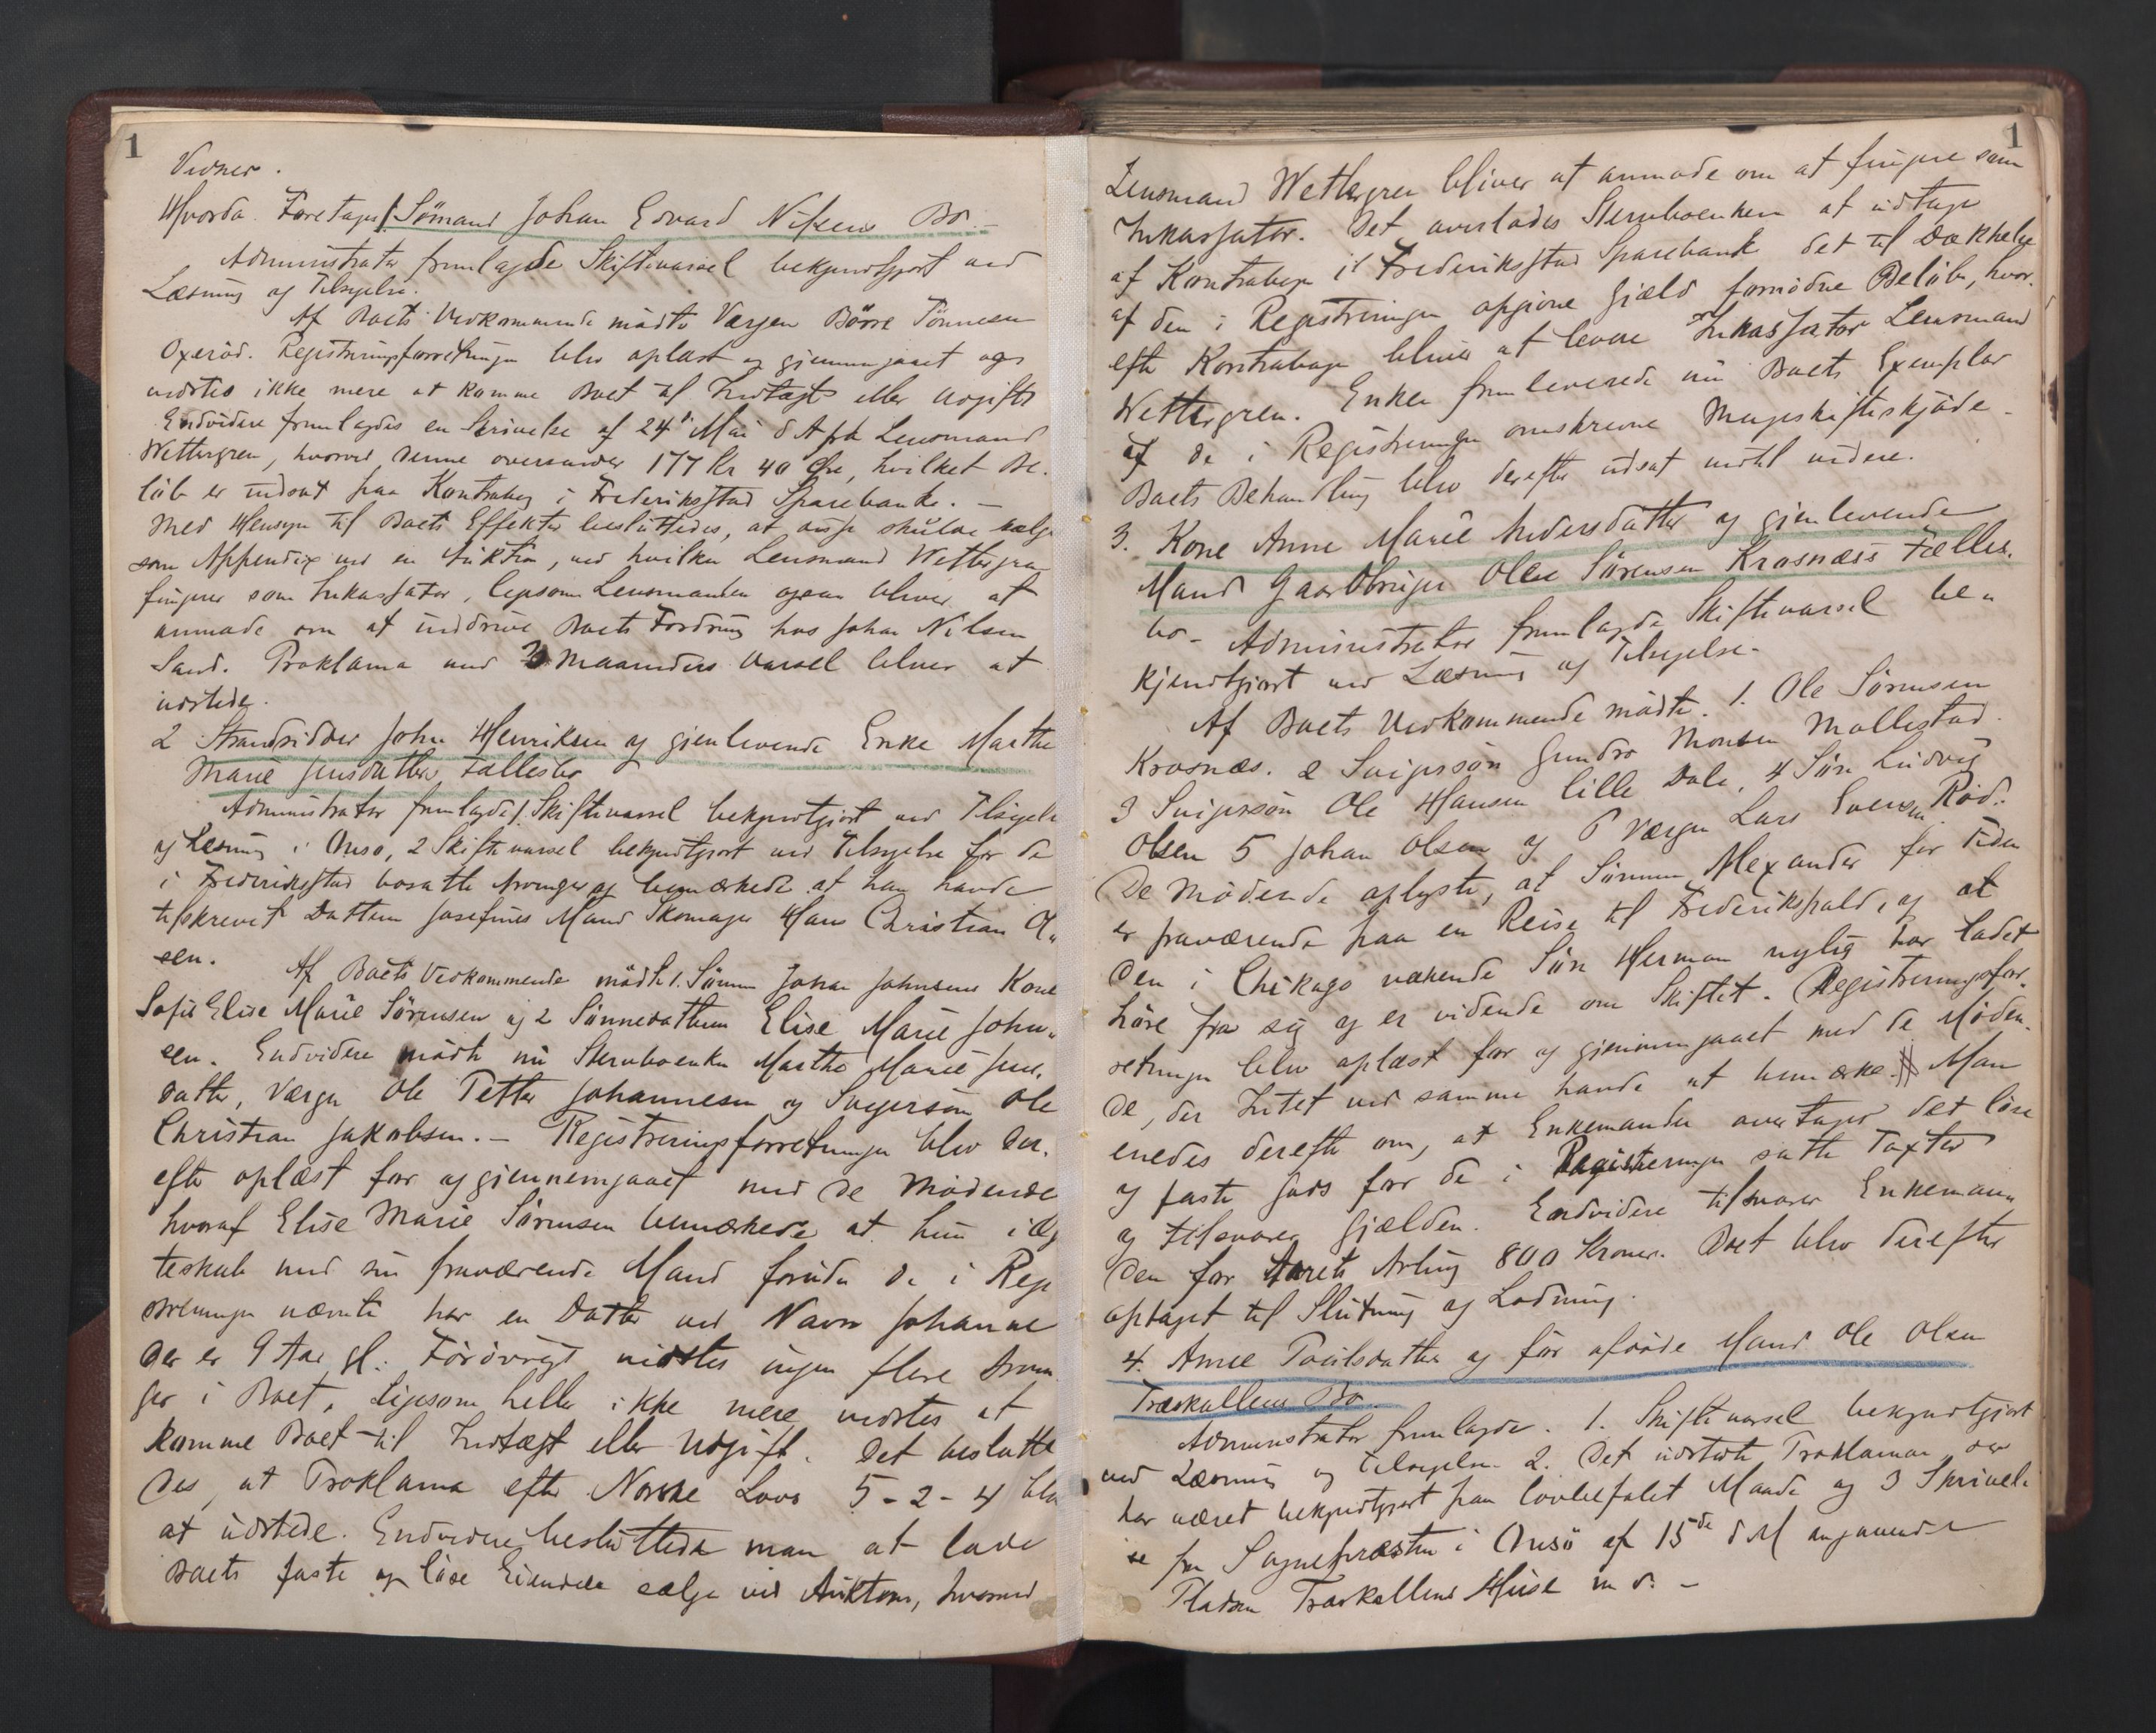 1
Vidner.
Hvorda Foretages 1. Sömand Johan Edvard Nilsens Bo. –
Administrator fremlagde Skiftevarsel bekjendtgjort ved
Læsning og Tilsigelse.
Af Boets Vedkommende mödte Værgen Börre Tönnesen
Oxeröd. Registreringsforretningen blev oplæst og gjennemgaaet og
vidstes ikke mere at komme Boet til Indtægt eller Udgift
Endvidere fremlagdes en Skrivelse af 24de Mai d A fra Lensmand
Wettergren, hvorved denne oversender 177 Kr 40 Öre, hvilket Be-
löb er indsat paa Kontrabog i Frederiksstad Sparebank. –
Med Hensyn til Boets Effekter besluttedes, at disse skulde sælges
som Appendix ved en Auktion, ved hvilken Lensmand Wettergren
fungerer som Inkassator, ligesom Lensmanden ogsaa bliver at
anmode om at inddrive Boets Fordring hos Johan Nilsen
Sand. Proklama med 3 Maaneders Varsel bliver at
udstede.
2 Strandsidder John Henriksen og gjenlevende Enke Marthe
Marie Jensdatters Fællesbo
Administrator fremlagde 1. Skiftevarsel bekjendtgjort ved Tilsigelse
og Læsning i Onsö, 2 Skiftevarsel bekjendtgjort ved Tilsigelse for de
i Frederiksstad bosatte Arvinger og bemærkede at han havde
tilskrevet Datteren Josefines Mand Skomager Hans Christian Ol„
sen.
Af Boets Vedkommende mödte 1. Sönnen Johan Johnsens Kone
Sofie Elise Marie Sörensen og 2 Sönnedatteren Elise Marie John„
sen. Endvidere mödte nu Stervboenken Marthe Marie Jens„
datter, Værgen Ole Petter Johannesen og Svigersön Ole
Christian Jakobsen. – Registreringsforretningen blev der„
efter oplæst for og gjennemgaaet med de Mödende
hvoraf Elise Marie Sörensen bemærkede at hun i Æg
teskab med sin fraværende Mand foruden de i Regi
streringen nævnte har en Datter ved Navn Johanne
der er 9 Aar gl. Forövrigt vidstes ingen flere Arvin
ger i Boet, ligesom heller ikke mere vidstes at
komme Boet til Indtægt eller Udgift. Det beslutte
des, at Proklama efter Norske Lovs 5-2-4 blev
at udstede. Endvidere besluttede man at lade
Boets faste og löse Eiendele sælge ved Auktion, hvorved
1
Lensmand Wettergren bliver at anmode om at fungere som
Inkassator. Det overlodes Stervboenken at udtage
af Kontrabogen i Frederiksstad Sparebank det til Dækkelse
af den i Registreringen opgivne Gjæld fornödne Belöb, hvor-
efter Kontrabogen bliver at levere Inkassator Lensmand
Wettergren. Enken fremleverede nu Boets Exemplar
af de i Registreringen omskrevne Mageskifteskjöde.
Boets Behandling blev derefter udsat indtil videre.
3. Kone Anne Marie Andersdatter og gjenlevende
Mand Gaardbruger Ole Sörensen Krosnæss Fælles-
bo – Administrator fremlagde Skiftevarsel be„
kjendtgjort ved Læsning og Tilsigelse.
Af Boets Vedkommende mödte. 1. Ole Sörensen
Krosnæs. 2 Svigersön Gundro Monsen Mallestad
3 Svigersön Ole Hansen lille Dale, 4 Sön Ludvig
Olsen 5 Johan Olsen og 6 Værgen Lars Evensen Röd.
De Mödende oplyste, at Sönnen Alexander for Tiden
er fraværende paa en Reise til Frederikshald, og at
den i Chikago værende Sön Herman nylig har ladet
höre fra sig og er vidende om Skiftet. Registreringsfor„
retningen blev oplæst for og gjennemgaaet med de Möden„
de, der Intet ved samme havde at bemærke. Man
enedes derefter om, at Enkemanden overtager det löse
og faste Gods for de i Registreringen satte Taxter
og tilsvarer Gjælden. Endvidere tilsvarer Enkemann
den for Aarets Avling 800 Kroner. Boet blev derefter
optaget til Slutning og Lodning.
4. Anne Poulsdatter og för afdöde Mand Ole Olsen
Træskallens Bo.
Administrator fremlagde. 1. Skiftevarsel bekjendtgjort
ved Læsning og Tilsigelse 2. Det udstedte Proklama der
har været bekjendtgjort paa lovbefalet Maade og 3 Skrivel-
se fra Sognepræsten i Onsö af 15de d M angaaende
Pladsen Træskallens Huse m. v. –